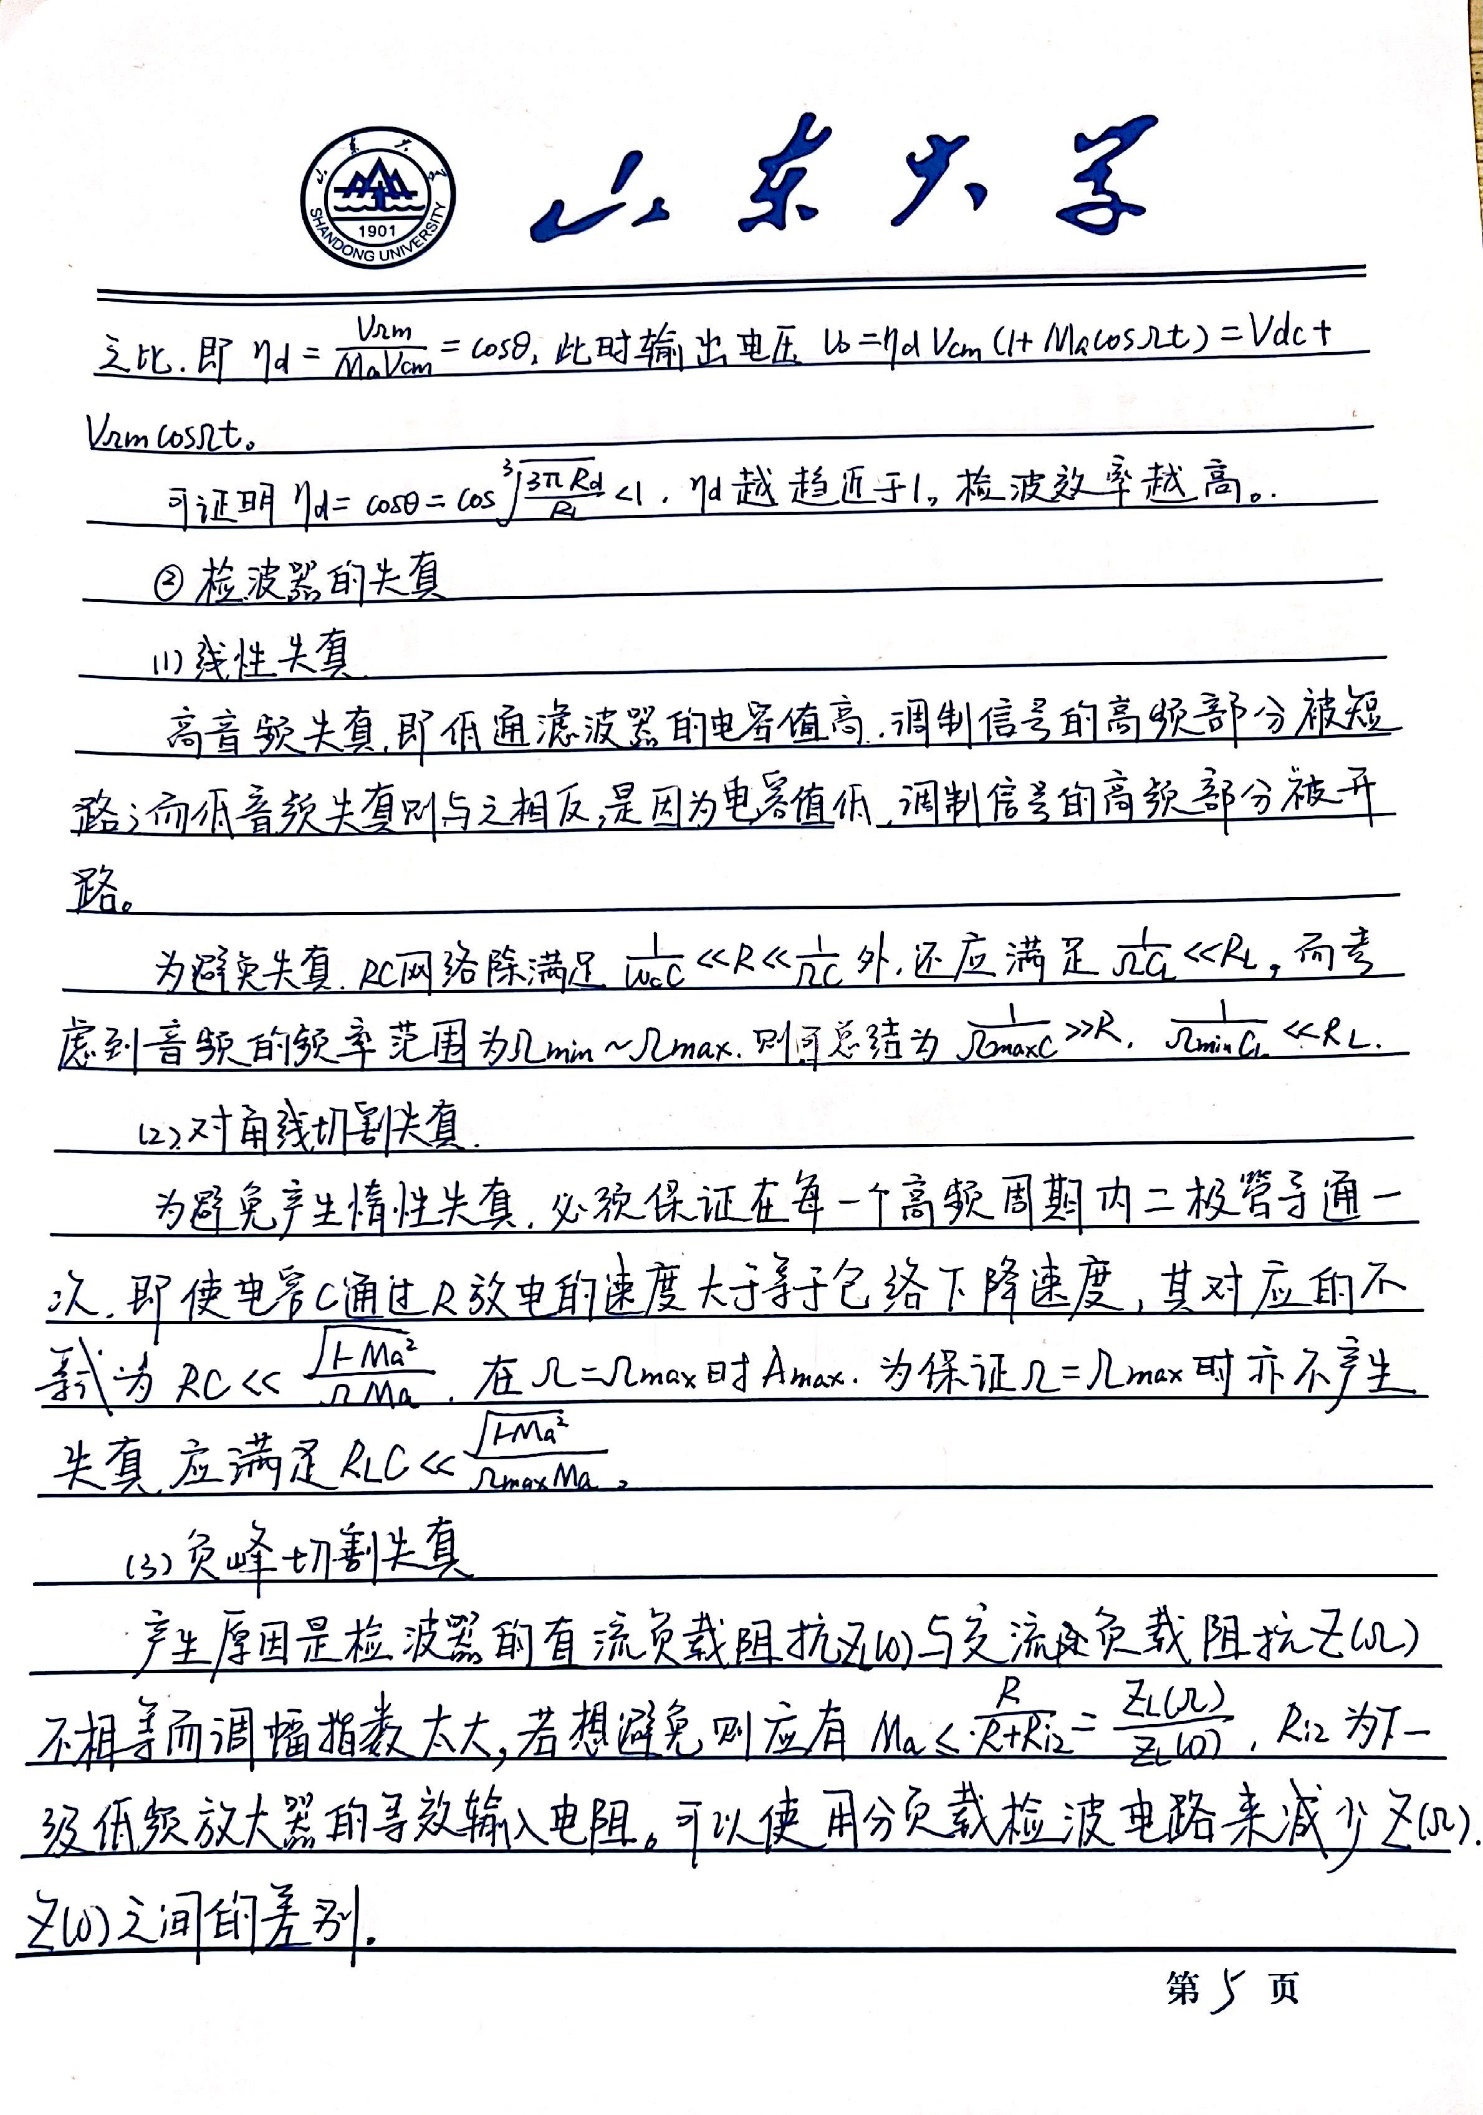 山东大学
山东大学
1901
SHANDONG UNIVERSITY
之比.即 ηd = VΩm/(MaVcm) = cosθ,此时输出电压 Uo=ηd Vcm (1+MacosΩt) = Vdc+
VΩm cosΩt。
可证明 ηd = cosθ = cos ∛(3πRd/RL) <1. ηd越趋近于1,检波效率越高。
② 检波器的失真
(1) 线性失真
高音频失真,即低通滤波器的电容值高.调制信号的高频部分被短
路;而低音频失真则与之相反,是因为电容值低,调制信号的高频部分被开
路。
为避免失真.RC网络除满足 1/(ωcC) ≪R≪ 1/(ΩC) 外,还应满足 1/(ΩCL) ≪RL,而考
虑到音频的频率范围为Ωmin~Ωmax.则可总结为 1/(ΩmaxC) ≫R. 1/(ΩminCL) ≪RL.
(2)对角线切割失真.
为避免产生惰性失真,必须保证在每一个高频周期内二极管导通一
次.即使电容C通过R放电的速度大于等于包络下降速度,其对应的不
等式为 RC≪ √(1-Ma²)/(ΩMa). 在Ω=Ωmax时Amax.为保证Ω=Ωmax时亦不产生
失真,应满足RLC≪ √(1-Ma²)/(ΩmaxMa)。
(3)负峰切割失真
产生原因是检波器的直流负载阻抗Z(0)与交流负载阻抗Z(Ω)
不相等而调幅指数太大,若想避免则应有 Ma ≤ R/(R+Ri2) = ZL(Ω)/ZL(0). Ri2为下一
级低频放大器的等效输入电阻。可以使用分负载检波电路来减少Z(Ω).
Z(0)之间的差别.
第 5 页